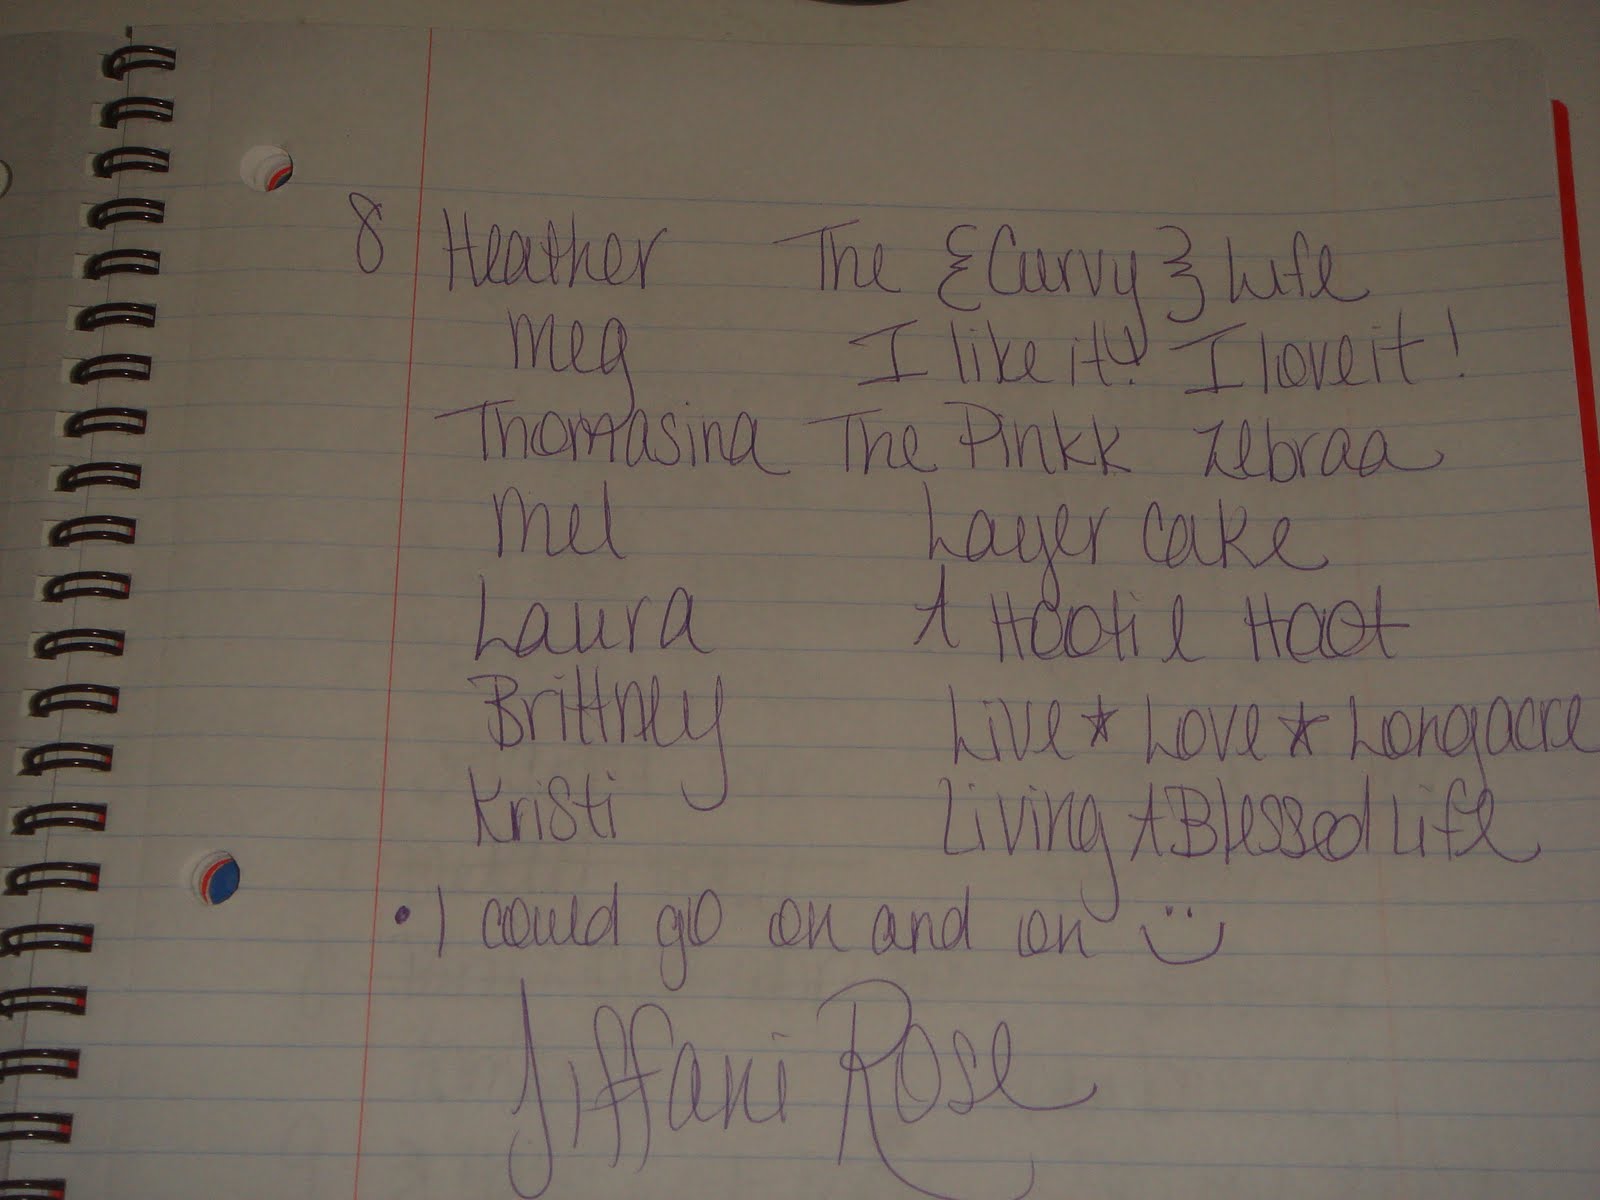 8 Heather The {Curvy} Life
Meg I like it! I love it!
Thomasina The Pinkk Zebraa
Mel Layer Cake
Laura A Hootie Hoot
Brittney Live ★ Love ★ Longacre
Kristi Living A Blessed Life
• I could go on and on :)
Tiffani Rose